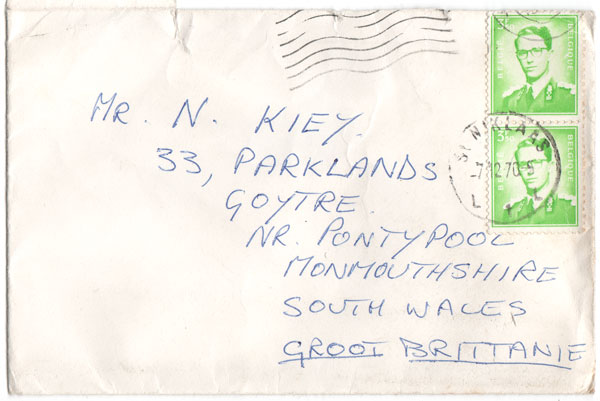 BELGIË BELGIQUE
3F
BELGIË BELGIQUE
ST NIKLAAS
-7 12 70-5
L L
MR. N. KIEY.
33, PARKLANDS
GOYTRE.
NR. PONTYPOOL
MONMOUTHSHIRE
SOUTH WALES
GROOT BRITTANIE